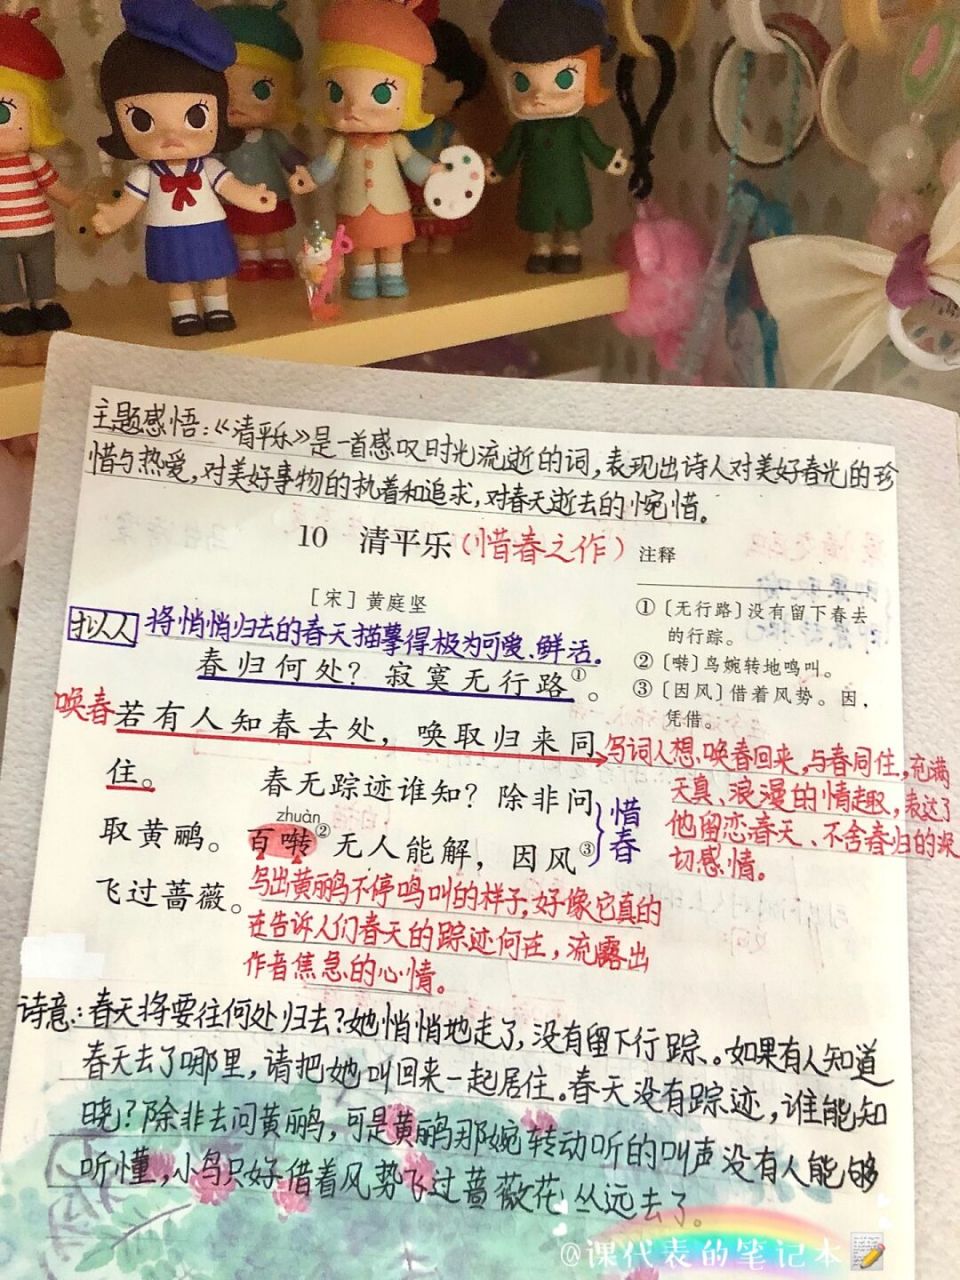 主题感悟:《清平乐》是一首感叹时光流逝的词,表现出诗人对美好春光的珍
惜与热爱,对美好事物的执着和追求,对春天逝去的惋惜。
10 清平乐(惜春之作)
注释
[宋]黄庭坚
拟人 将悄悄归去的春天描摹得极为可爱、鲜活。
春归何处?寂寞无行路①。
唤春 若有人知春去处,唤取归来同
住。
春无踪迹谁知?除非问
取黄鹂。百啭②无人能解,因风③
zhuàn
飞过蔷薇。
惜春
①〔无行路〕没有留下春去
的行踪。
②〔啭〕鸟婉转地鸣叫。
③〔因风〕借着风势。因,
凭借。
写词人想唤春回来,与春同住,充满
天真、浪漫的情趣,表达了
他留恋春天、不舍春归的深
切感情。
写出黄鹂不停鸣叫的样子,好像它真的
在告诉人们春天的踪迹何在,流露出
作者焦急的心情。
诗意:春天将要往何处归去?她悄悄地走了,没有留下行踪、。如果有人知道
春天去了哪里,请把她叫回来一起居住。春天没有踪迹,谁能知
晓?除非去问黄鹂,可是黄鹂那婉转动听的叫声没有人能够
听懂,小鸟只好借着风势飞过蔷薇花丛远去了。
@课代表的笔记本📝